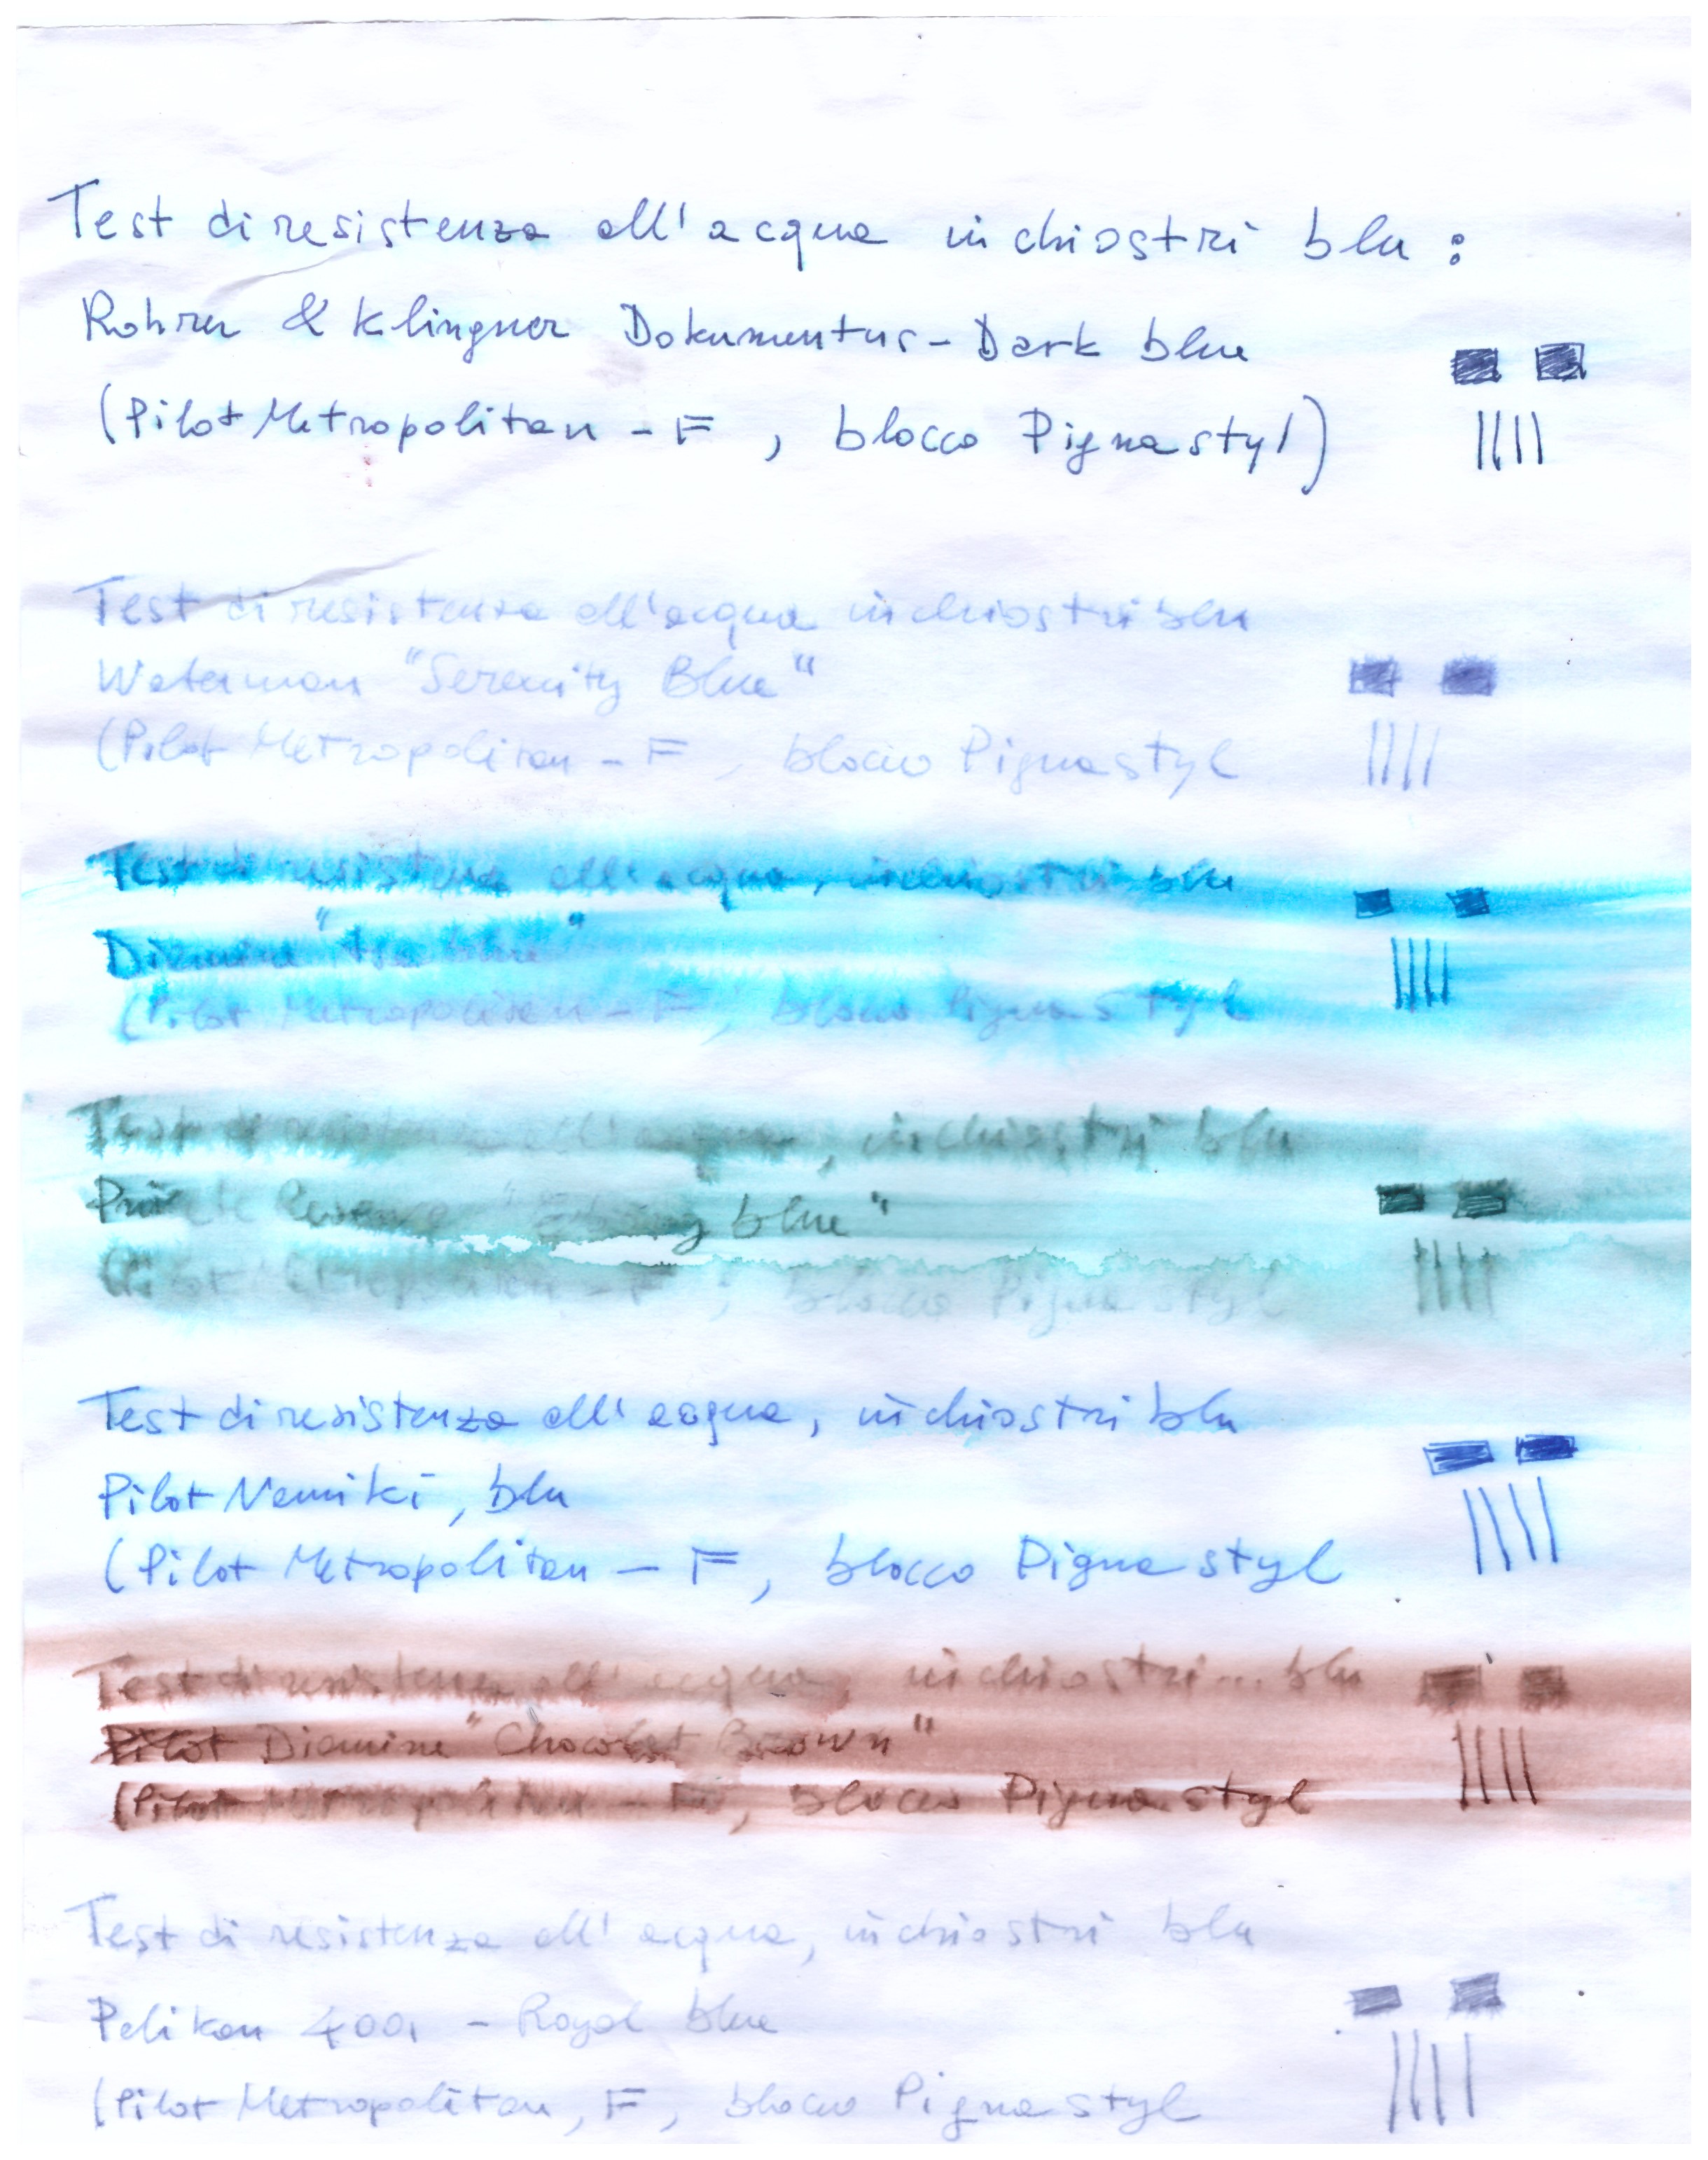 Test di resistenza all'acqua inchiostri blu :
Rohrer & Klingner Dokumentus - Dark blue
(Pilot Metropolitan - F , blocco Pigna styl)
Test di resistenza all'acqua inchiostri blu
Waterman "Serenity Blue"
(Pilot Metropolitan - F , blocco Pigna styl
Test di resistenza all'acqua, inchiostri blu
Diamine " blue"
(Pilot Metropolitan - F , blocco Pigna styl
Test di resistenza all'acqua, inchiostri blu
Private Reserve " blue"
(Pilot Metropolitan - F , blocco Pigna styl
Test di resistenza all'acqua, inchiostri blu
Pilot Namiki, blu
(Pilot Metropolitan - F, blocco Pigna styl
Test di resistenza all'acqua, inchiostri... blu
Pilot Diamine "Chocolat Brown"
(Pilot Metropolitan - F, blocco Pigna styl
Test di resistenza all'acqua, inchiostri blu
Pelikan 4001 - Royal blue
(Pilot Metropolitan, F, blocco Pigna styl